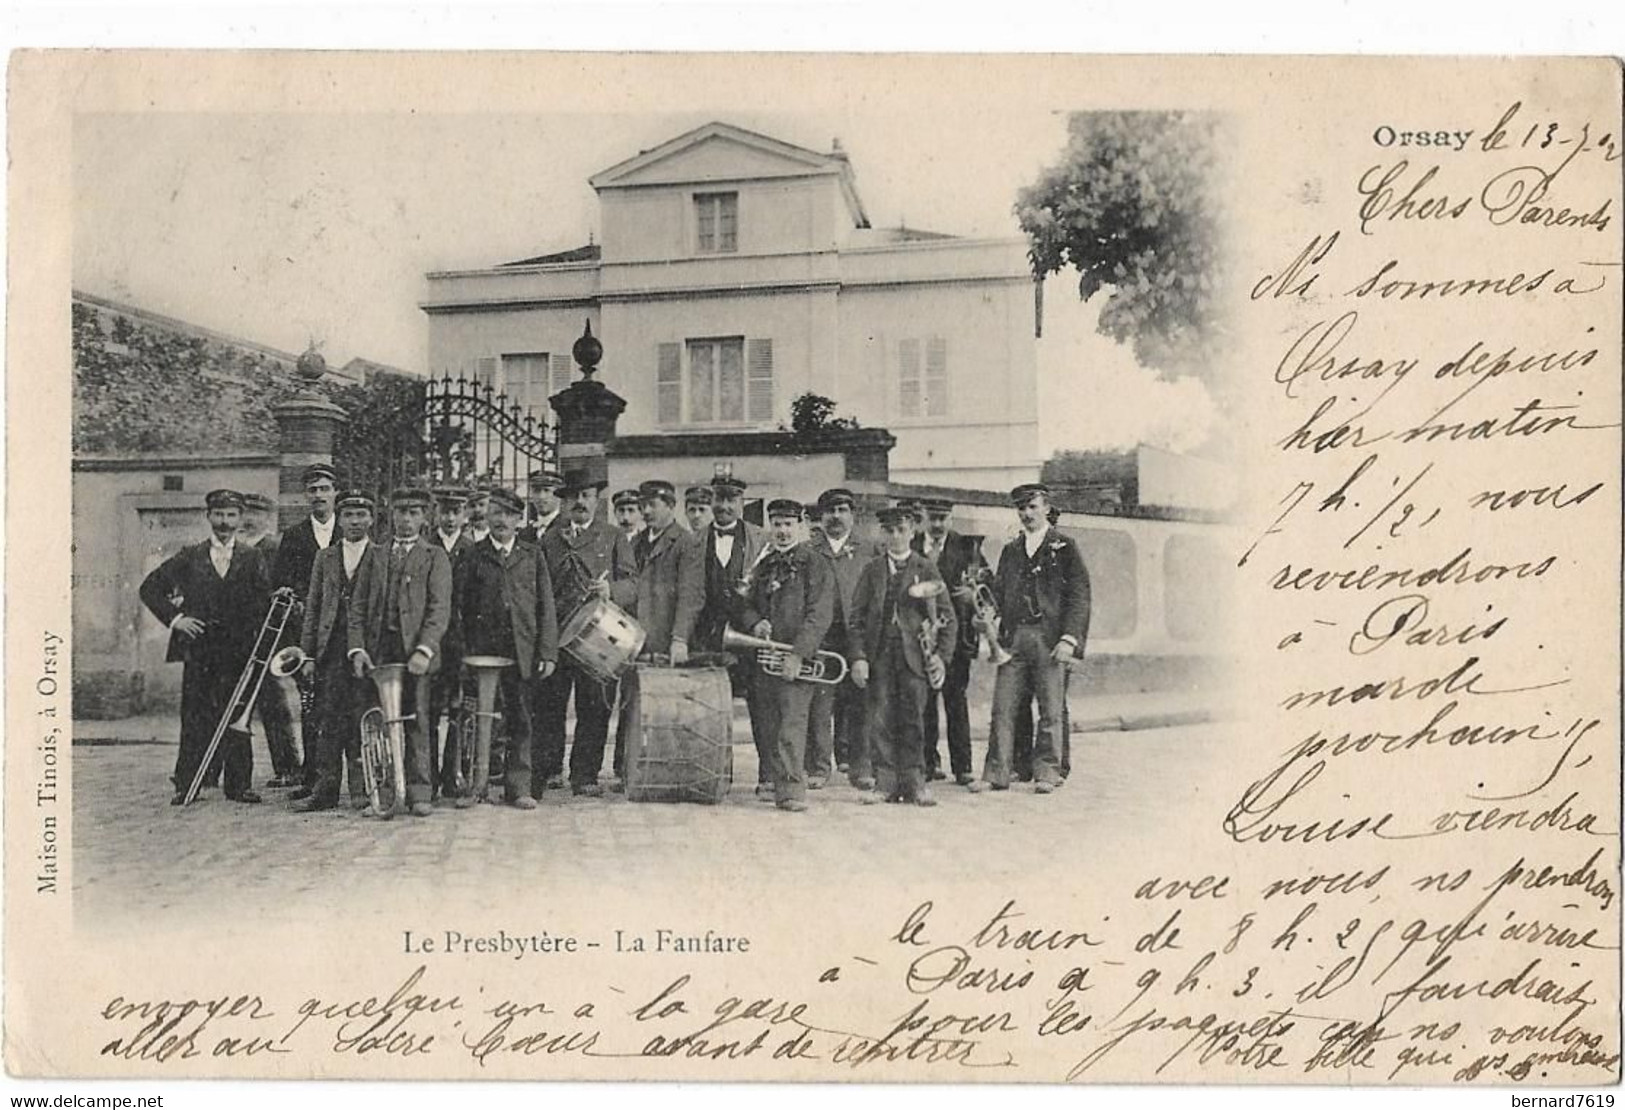 Orsay le 13-7-02
Chers Parents
Ns sommes à
Orsay depuis
hier matin
7 h. 1/2, nous
reviendrons
à Paris
mardi
prochain 15,
Louise viendra
avec nous, ns prendrons
le train de 8 h. 25 qui arrive
à Paris à 9 h. 3. il faudrait
envoyer quelqu'un à la gare pour les paquets car ns voulons
aller au Sacré Cœur avant de rentrer.
Votre fille qui vs embrasse
Le Presbytère - La Fanfare
Maison Tinois, à Orsay
bernard7619